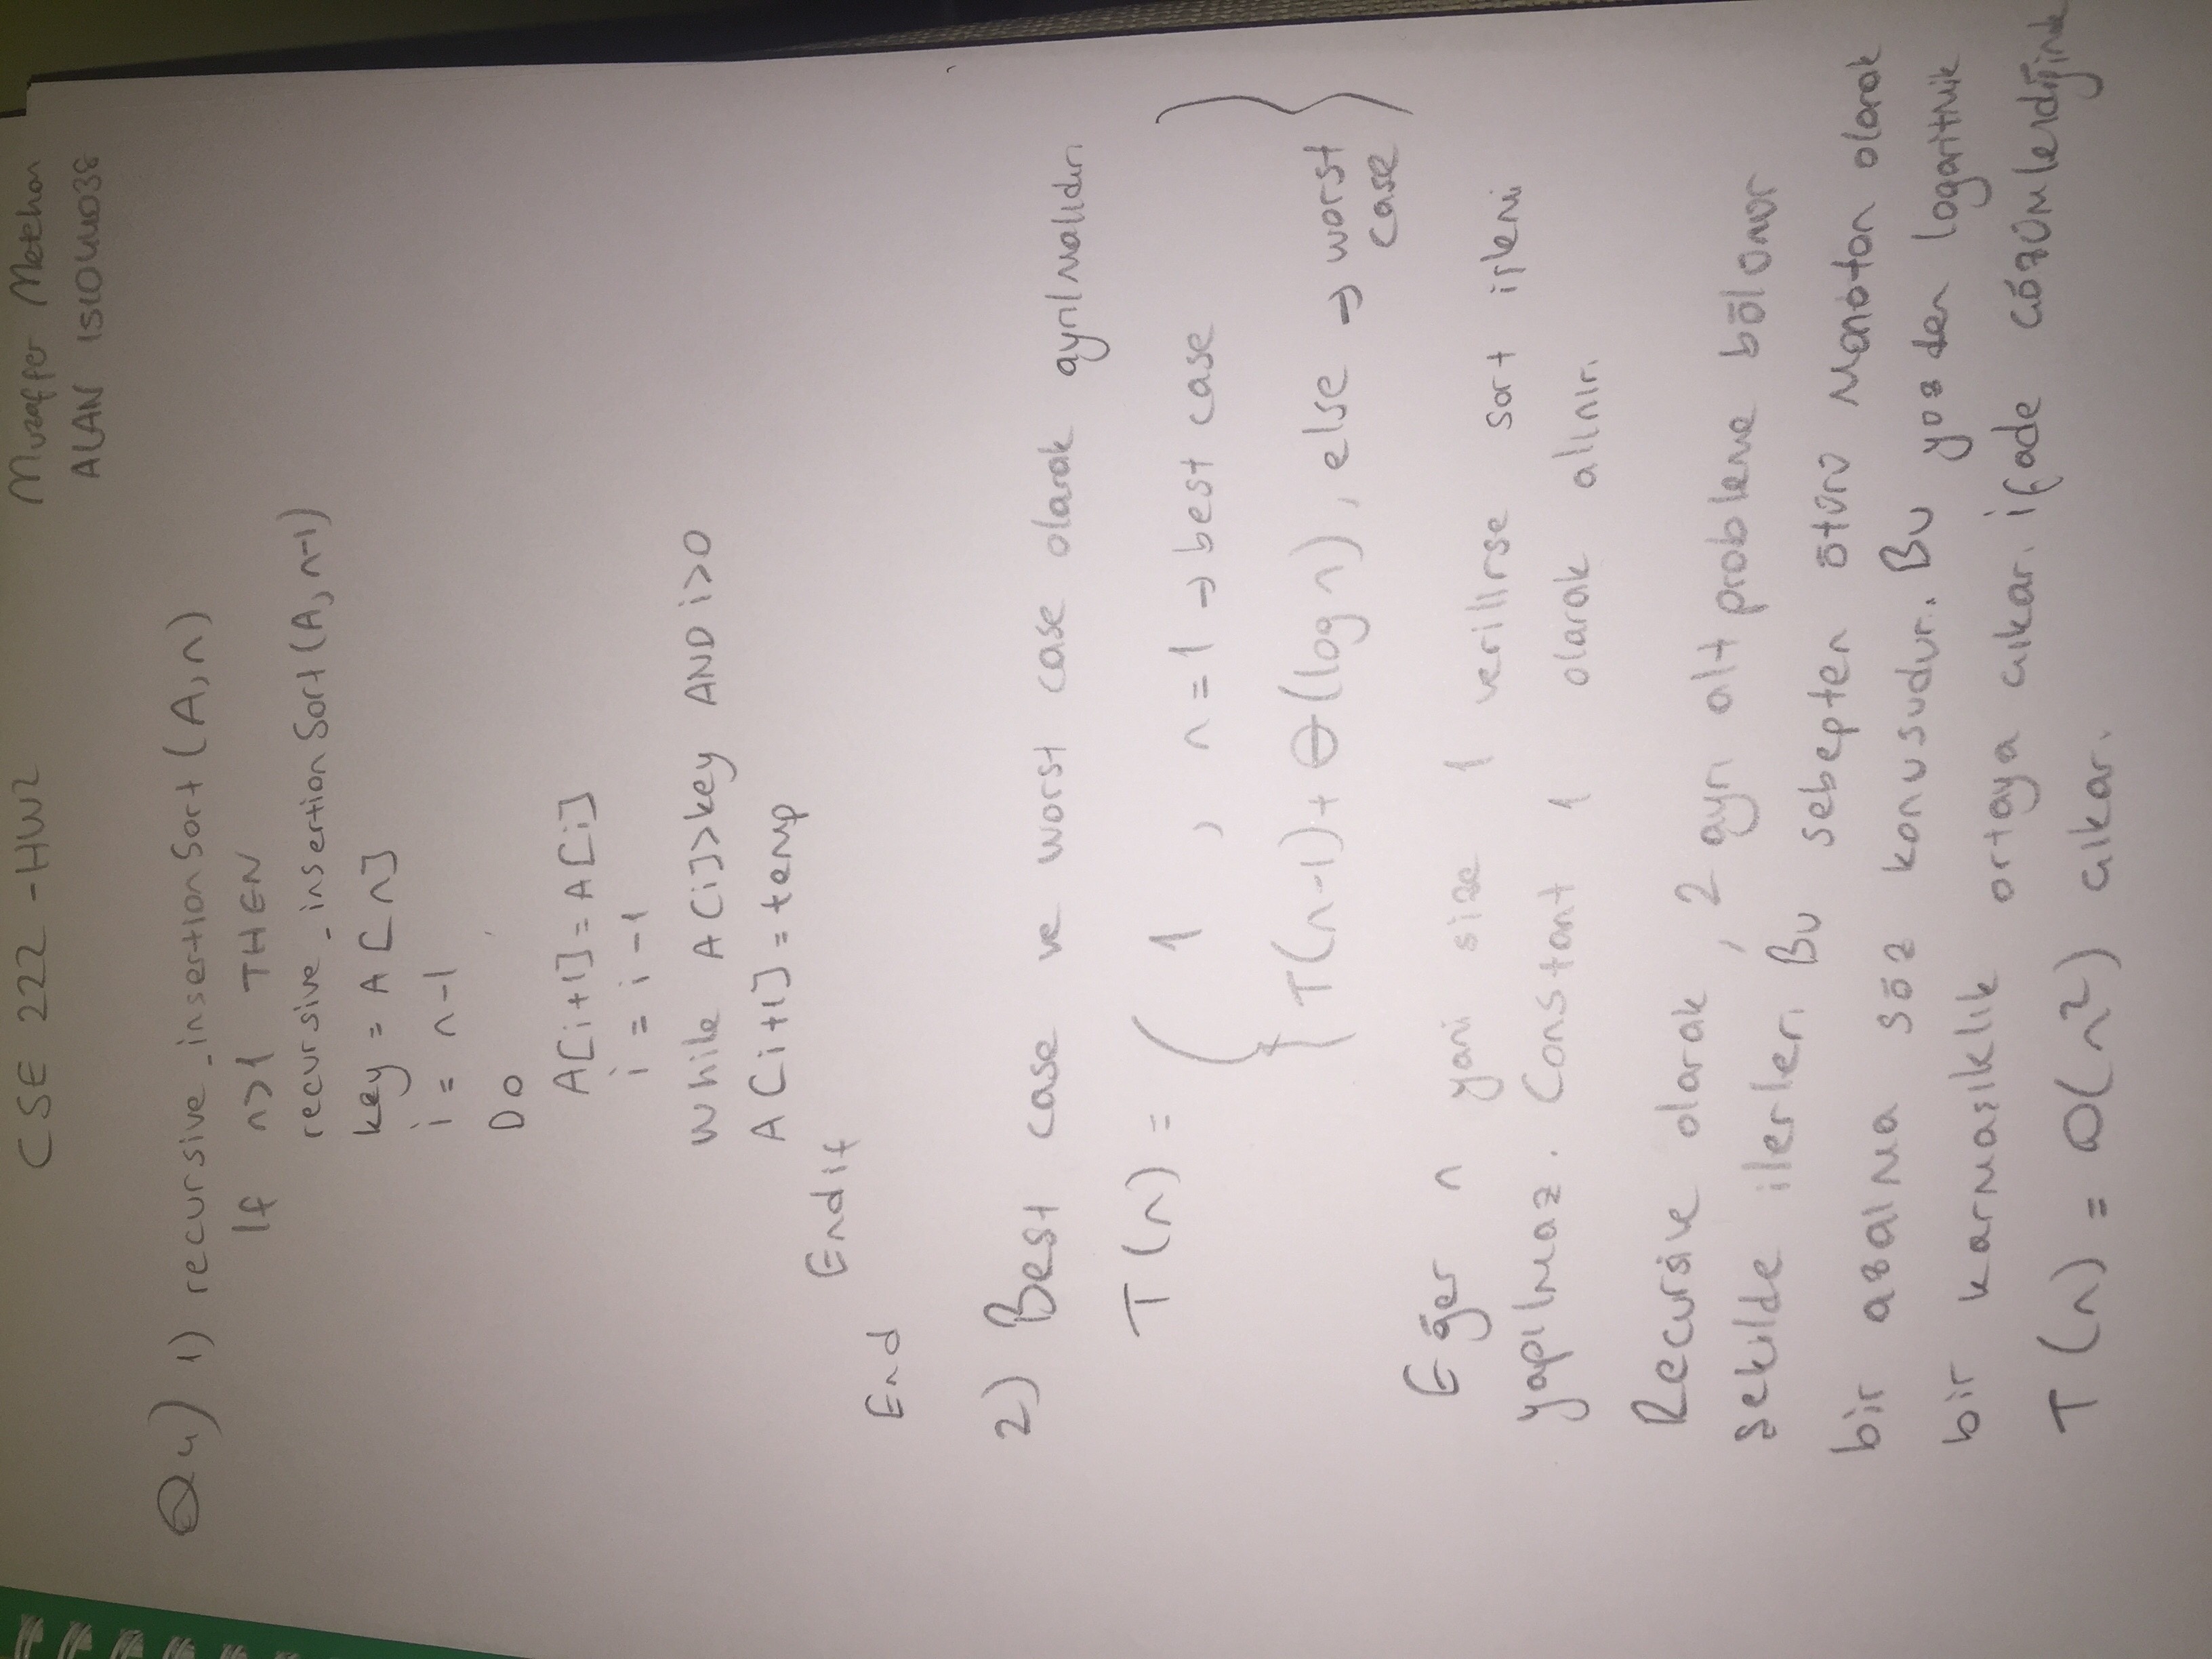 CSE 222 - HW2
Muzaffer Metehan
ALAN 151044038
Q4) 1) recursive_insertionSort(A,n)
If n>1 THEN
recursive_insertionSort(A, n-1)
key = A[n]
i = n-1
Do
A[i+1] = A[i]
i = i-1
While A[i]>key AND i>0
A[i+1] = temp
Endif
End
2) Best case ve worst case olarak ayrılmalıdır.
T(n) = { 1 , n=1 → best case
T(n-1) + Θ(log n), else → worst
case }
Eğer n yani size 1 verilirse sort işlemi
yapılmaz. Constant 1 olarak alınır.
Recursive olarak, 2 ayrı alt probleme bölünür
şekilde ilerler. Bu sebepten ötürü monoton olarak
bir azalma söz konusudur. Bu yüzden logaritmik
bir karmaşıklık ortaya çıkar. İfade çözümlendiğinde
T(n) = O(n²) çıkar.